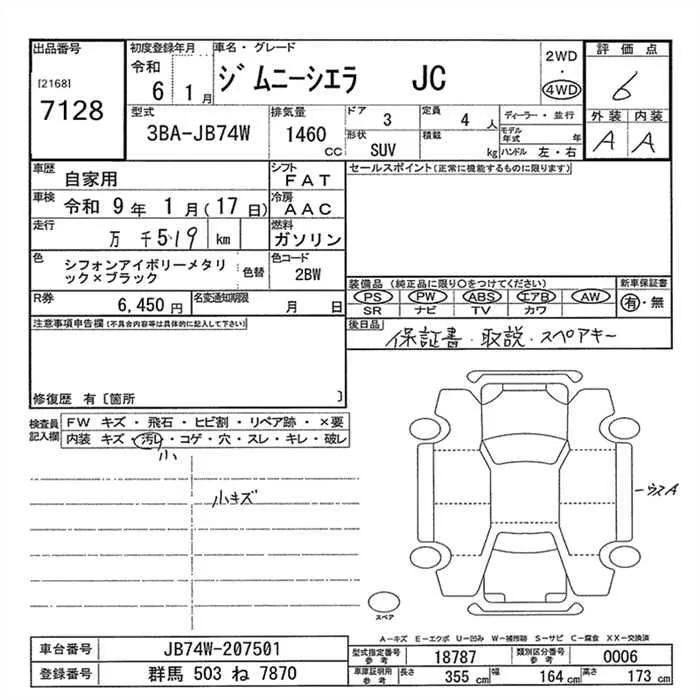 出品番号
[2168]
7128
初度登録年月
令和
6 1月
車名・グレード
ジムニーシエラ JC
2WD
・
4WD
評価点
6
外装 内装
A A
型式
3BA-JB74W
排気量
1460
CC
ドア
3
形状
SUV
定員
4 人
積載
kg
ディーラー・並行
モデル
年式 年
ハンドル 左・右
車歴
自家用
シフト
FAT
車検
令和 9年 1月(17日)
冷房
AAC
走行
万 千519 km
燃料
ガソリン
色
シフォンアイボリーメタリ
ック×ブラック
色替
色コード
2BW
R券
6,450 円
名変通知期限
月 日
セールスポイント(正常に機能するものに限ります)
装備品 (純正品に限り○をつけてください)
PS PW ABS エアB AW
SR ナビ TV カワ
新車保証書
有・無
後日品
保証書・取説・スペアキー
注意事項申告欄(不具合内容等は具体的に記入して下さい)
修復歴 有〔箇所 〕
検査員
記入欄
FW キズ ・ 飛石 ・ ヒビ割 ・ リペア跡 ・ ×要
内装 キズ・汚レ・コゲ・穴・スレ・キレ・破レ
小
小キズ
ウスA
スペア
A-キズ E-エクボ U-凹み W-補修跡 S-サビ C-腐食 XX-交換済
車台番号
JB74W-207501
登録番号
群馬 503 ね 7870
型式指定番号
参考
18787
類別区分番号
参考
0006
車庫証明用
参考
長さ 355 cm 幅 164 cm 高さ 173 cm